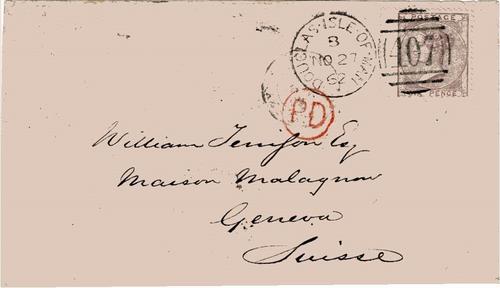 POSTAGE
DOUGLAS·ISLE·OF·MAN
B
NO 27
62
407
SIX PENCE
PD
William Esq
Maison Malagnou
Geneva
Suisse